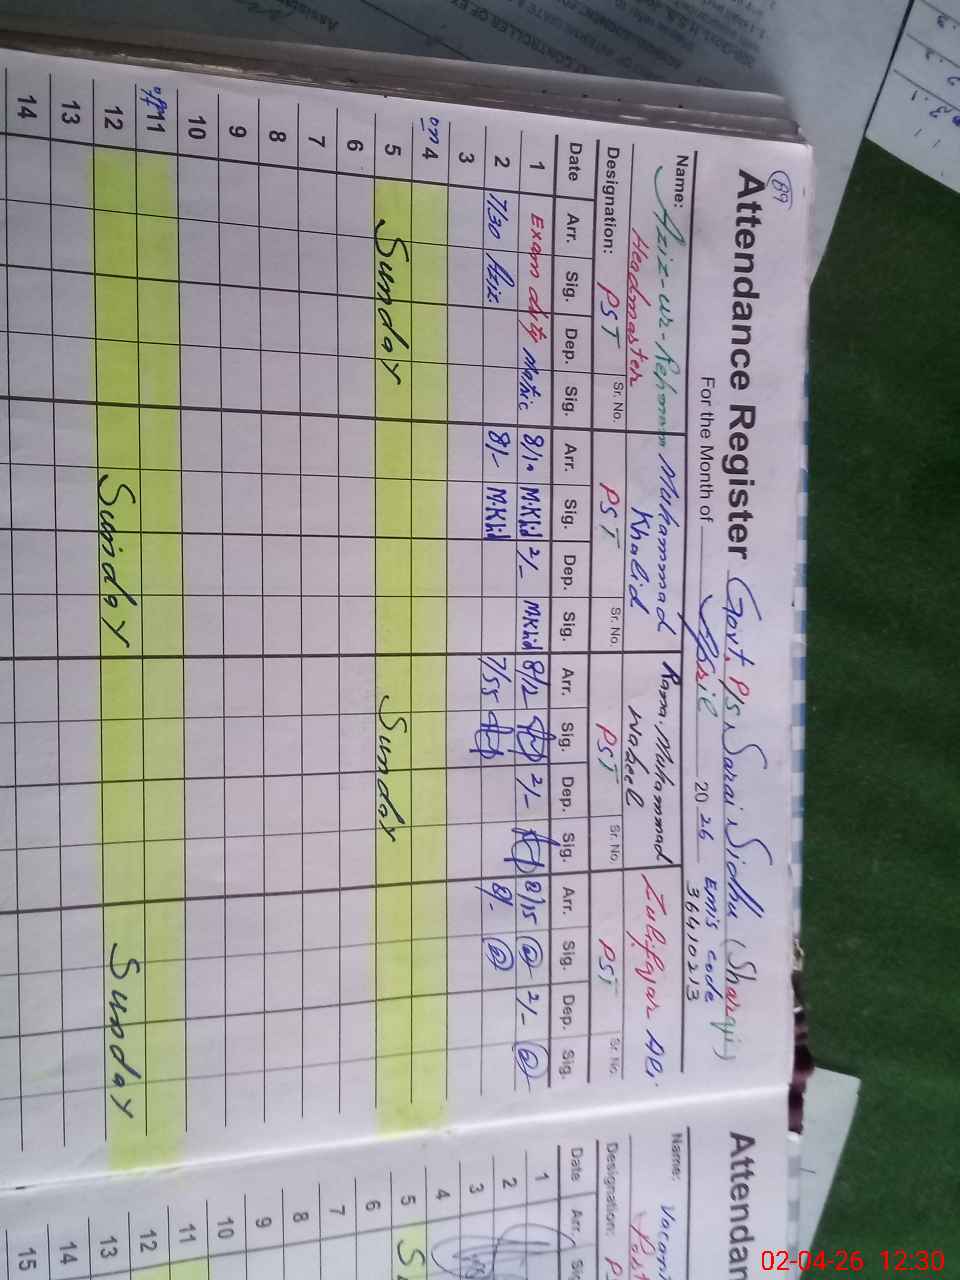 89
Attendance Register Govt. P/S Sarai Sidhu (Sharqi)
For the Month of 2026 Emis code
36410213
Name: Aziz-ur-Rehman Muhammad Rana Muhammad Zulifqar Ali
Headmaster Khalid Waheel
Designation: PST PST PST PST
Sr. No. Sr. No. Sr. No. Sr. No.
Date Arr. Sig. Dep. Sig. Arr. Sig. Dep. Sig. Arr. Sig. Dep. Sig. Arr. Sig. Dep. Sig.
1 Exam duty Matric 8/10 M.Khld 2/- M.Khld 8/2 2/- 8/15 2/-
2 7/30 Aziz 8/- M.Khld 7/55 8/-
3
on 4
5 Sunday Sunday
6
7
8
9
10
off 11
12 Sunday Sunday
13
14
Attendan
Name: Vacant
Post
Designation: P
Date Arr. Sig
1
2
3
4
5 S
6
7
8
9
10
11
12
13
14
15
02-04-26 12:30